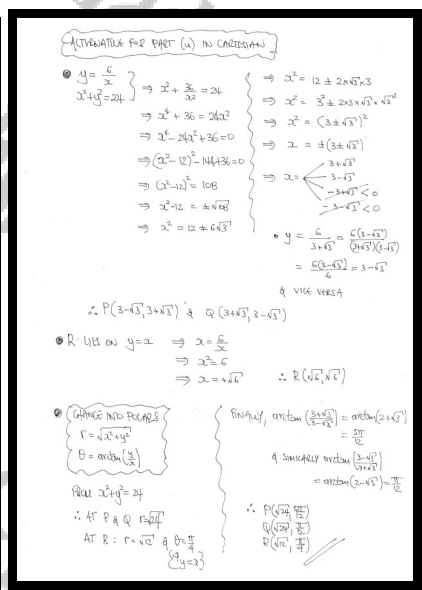 ALTERNATIVE FOR PART (a) IN CARTESIAN
y = 6/x
x²+y²=24
⇒ x² + 36/x² = 24
⇒ x⁴ + 36 = 24x²
⇒ x⁴ - 24x² + 36 = 0
⇒ (x²-12)² - 144 + 36 = 0
⇒ (x²-12)² = 108
⇒ x²-12 = ±√108
⇒ x² = 12 ± 6√3
⇒ x² = 12 ± 2×√3×3
⇒ x² = 3² ± 2×3×√3 + √3²
⇒ x² = (3±√3)²
⇒ x = ±(3±√3)
⇒ x = 3+√3
3-√3
-3+√3 < 0
-3-√3 < 0
y = 6/(3+√3) = 6(3-√3)/((3+√3)(3-√3))
= 6(3-√3)/6 = 3-√3
& VICE VERSA
∴ P(3-√3, 3+√3) & Q(3+√3, 3-√3)
R LIES ON y=x ⇒ x = 6/x
⇒ x² = 6
⇒ x = +√6 ∴ R(√6, √6)
CHANGE INTO POLARS
r = √(x²+y²)
θ = arctan(y/x)
FROM x²+y² = 24
∴ AT P & Q r=√24
AT R : r = √12 & θ = π/4
{y=x}
FINALLY, arctan((3+√3)/(3-√3)) = arctan(2+√3)
= 5π/12
& SIMILARLY arctan((3-√3)/(3+√3))
= arctan(2-√3) = π/12
∴ P(√24, 5π/12)
Q(√24, π/12)
R(√12, π/4)